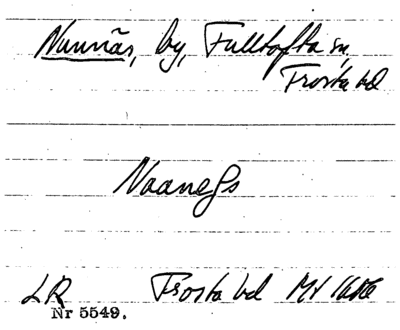 Nunnäs, by, Fulltofta sn,
Frosta hd
Naanes
LR Frosta hd Ml
Nr 5549.